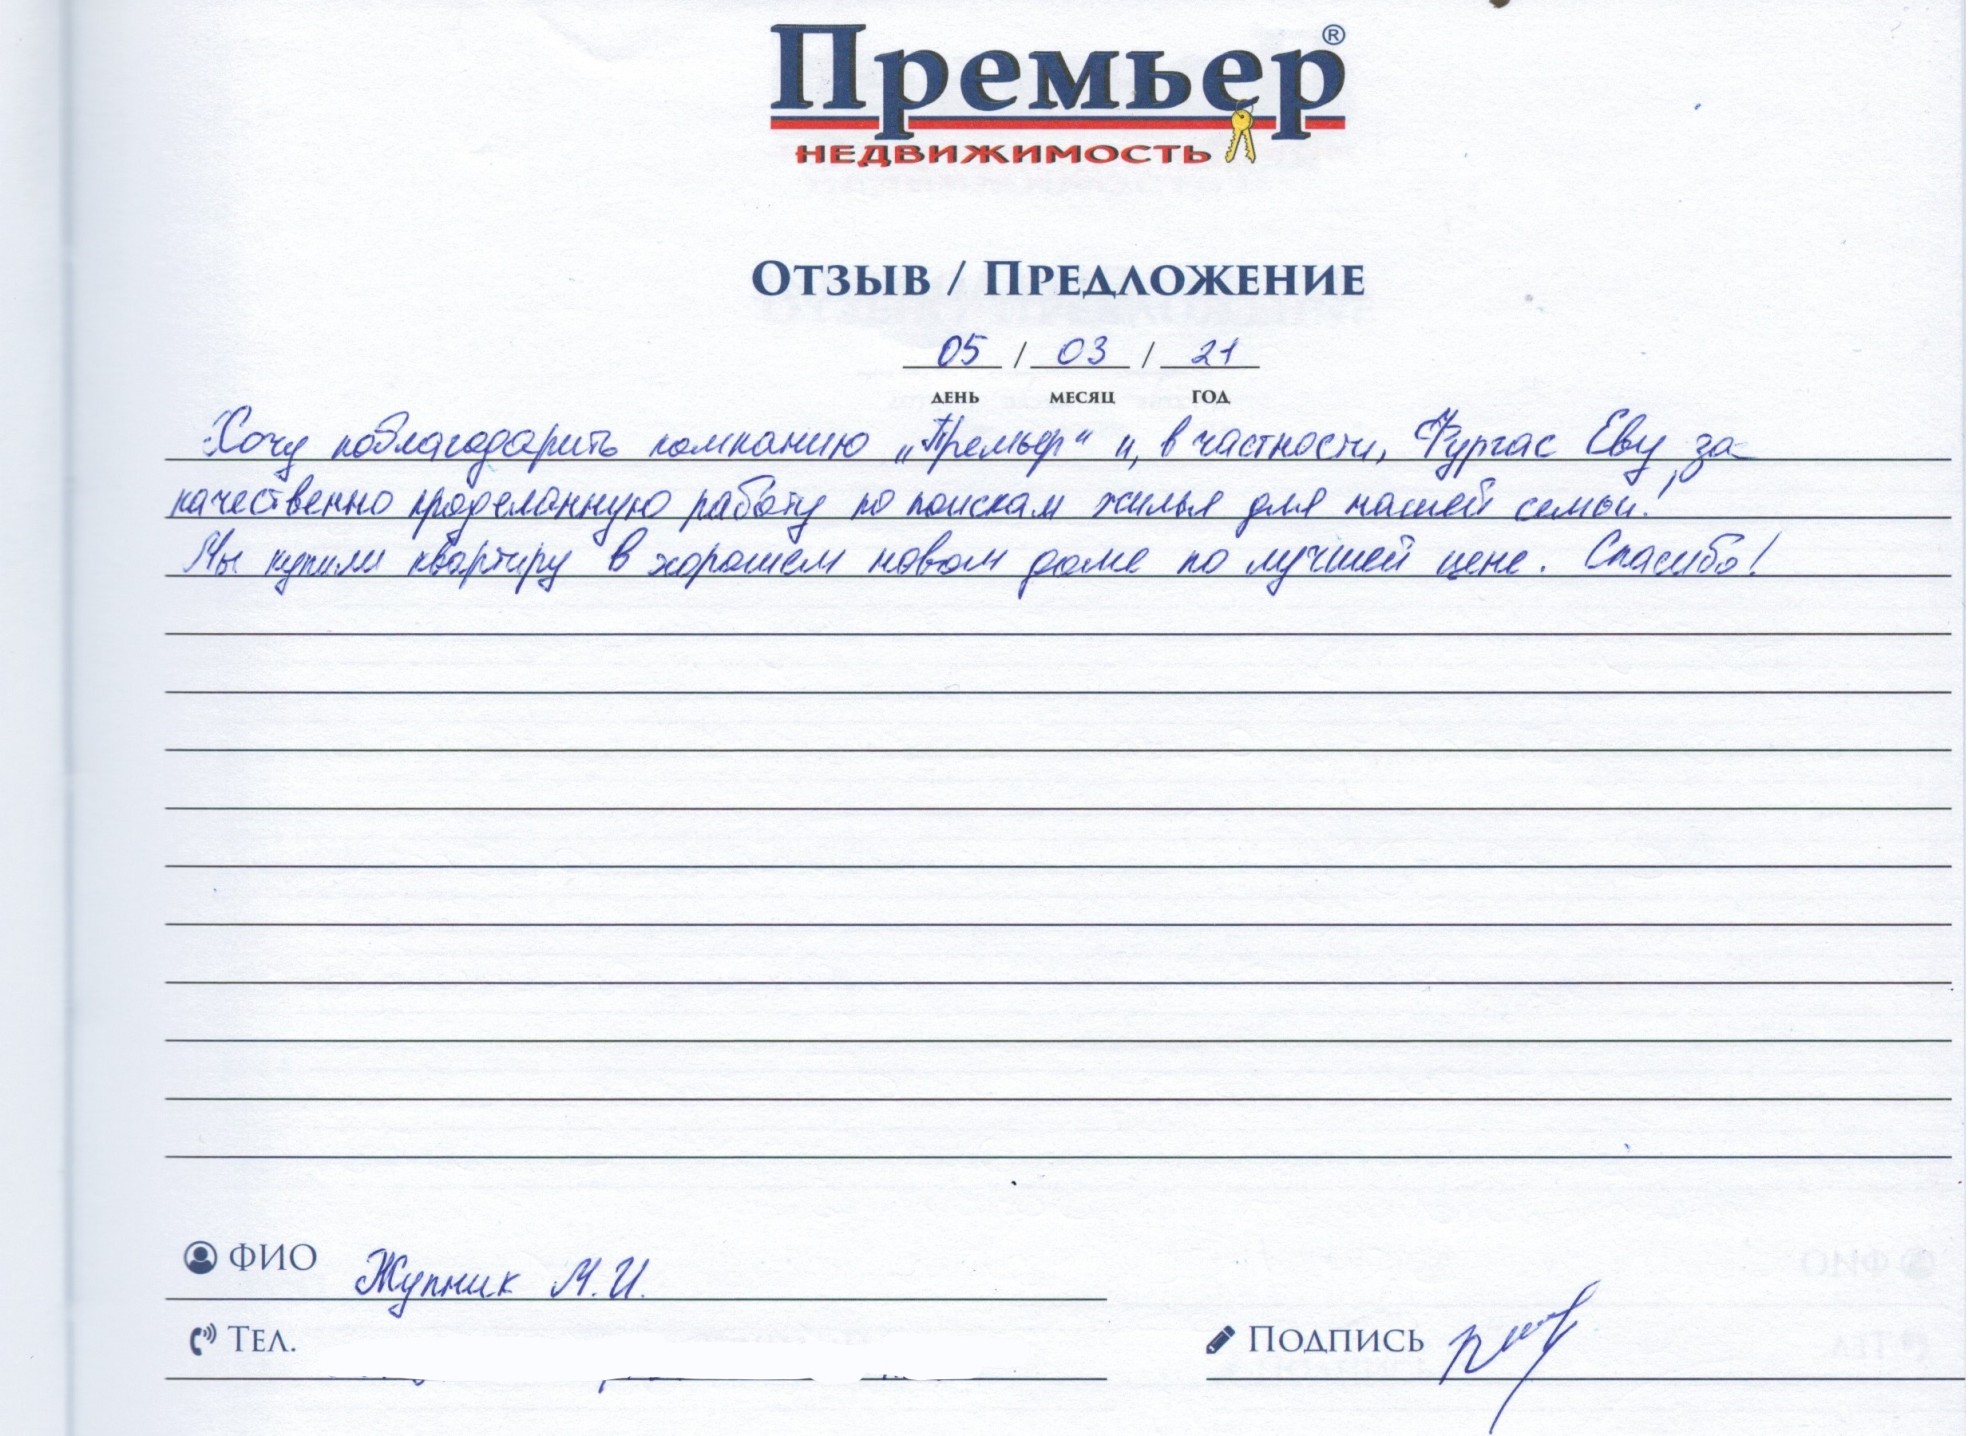 Премьер®
НЕДВИЖИМОСТЬ
ОТЗЫВ / ПРЕДЛОЖЕНИЕ
05 / 03 / 21
ДЕНЬ МЕСЯЦ ГОД
Хочу поблагодарить компанию „Премьер“ и, в частности, Фургас Еву, за
качественно проделанную работу по поискам жилья для нашей семьи!
Мы купили квартиру в хорошем новом доме по лучшей цене. Спасибо!
ФИО Жупник М.И.
ТЕЛ.
ПОДПИСЬ